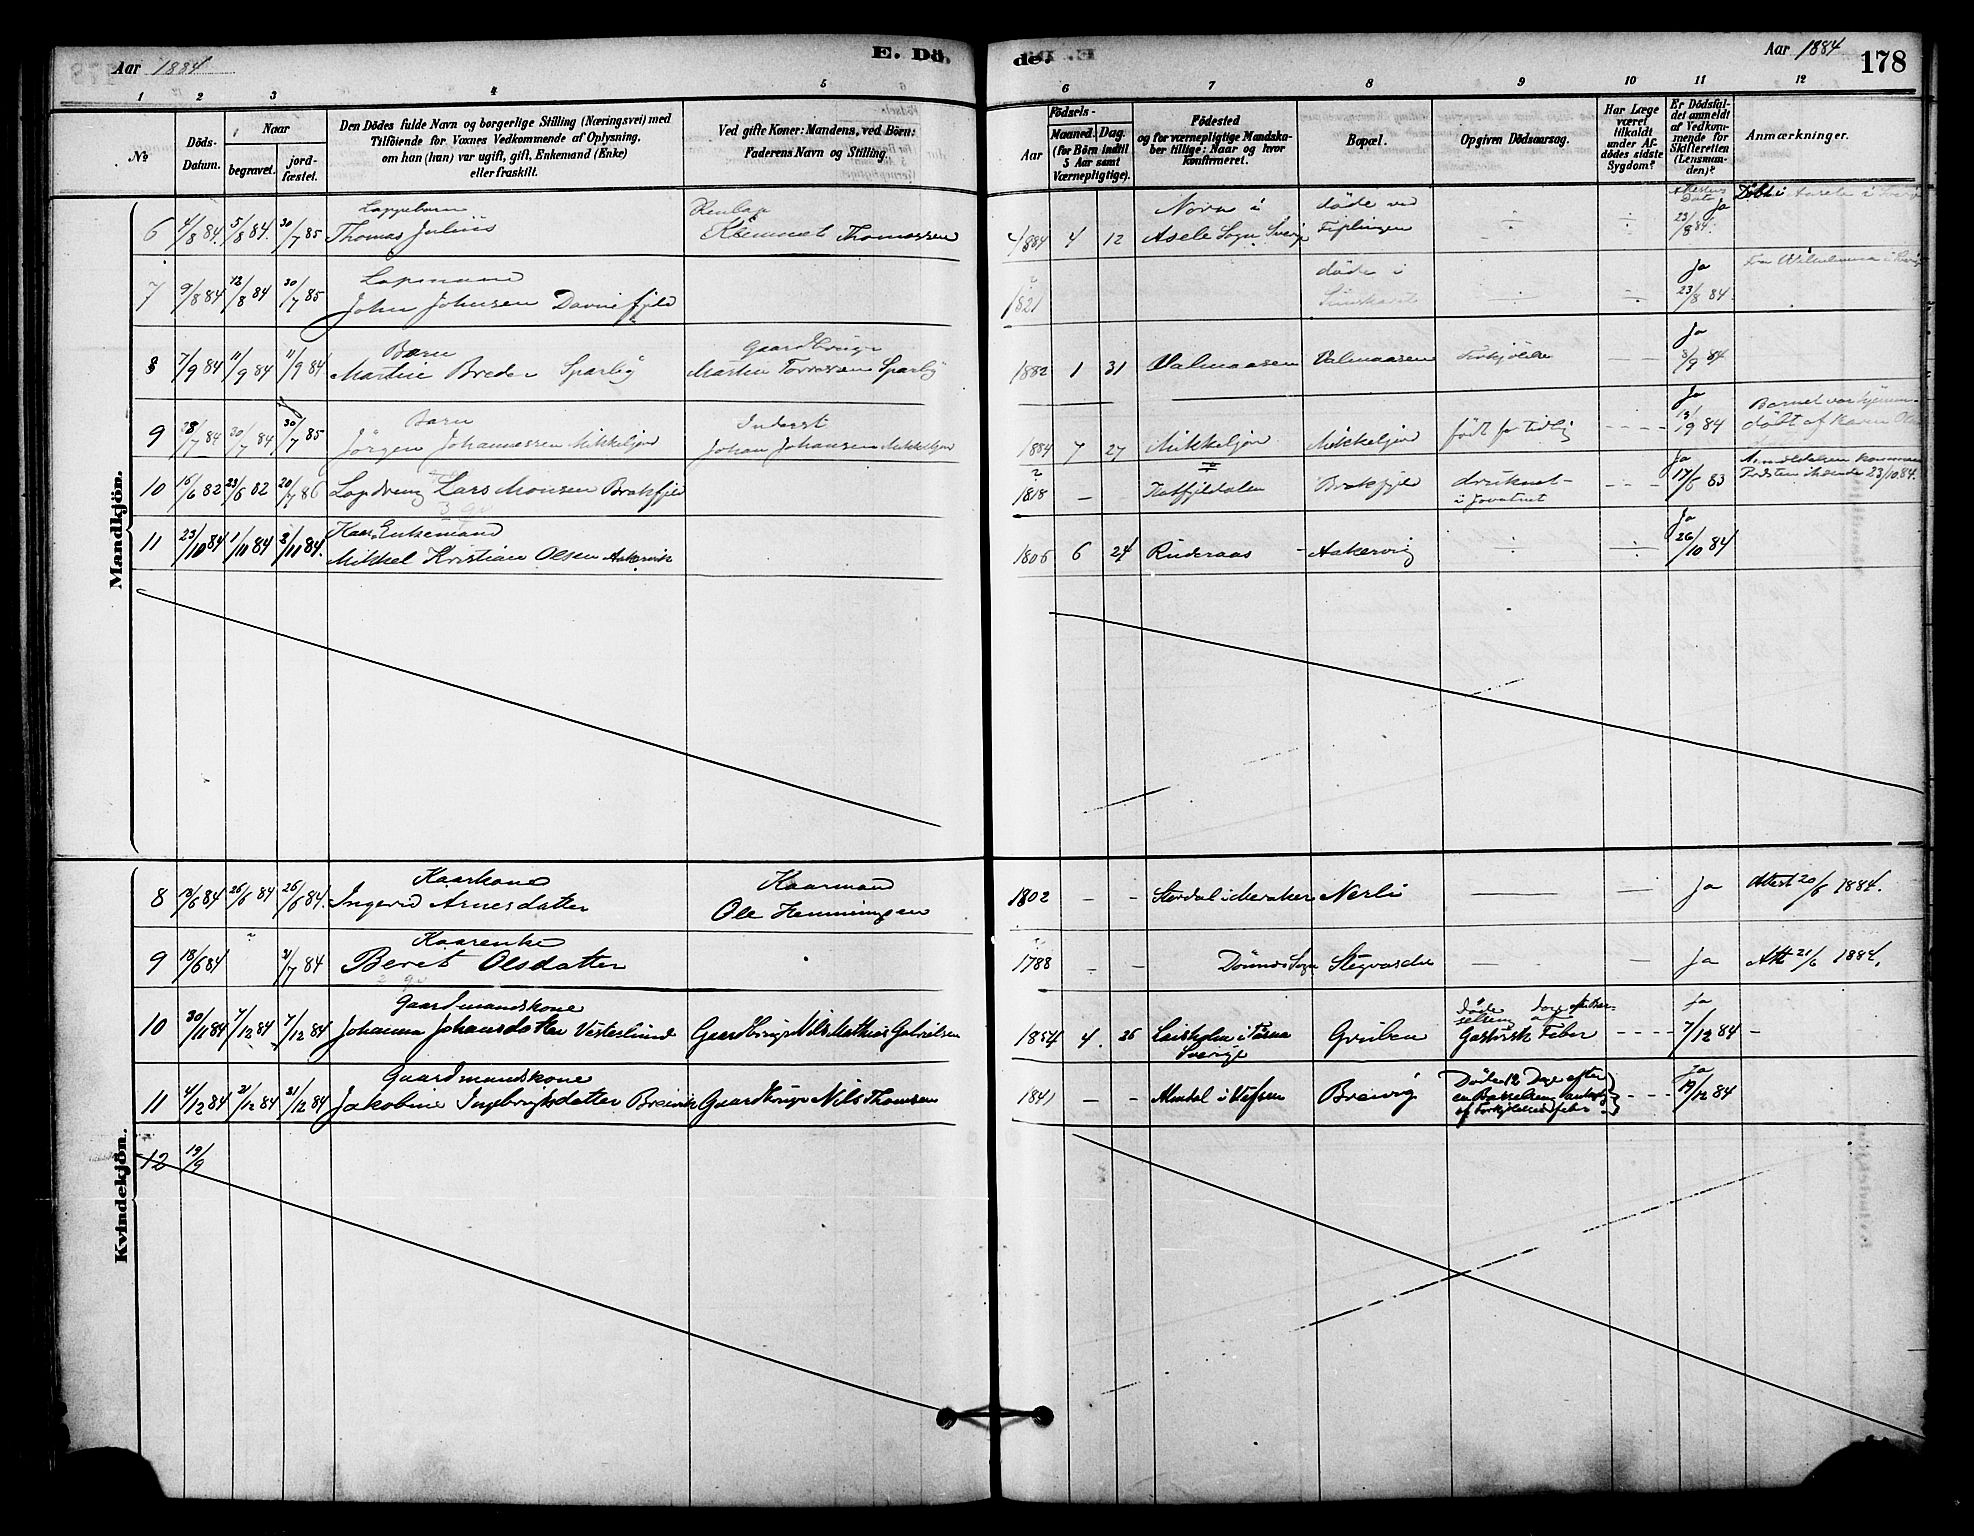 Aar 1884
E. Dö
de.
Aar 1884
178
1 2 3 4 5
6 7 8 9 10 11 12
No
Döds-Datum.
Naar
begravet.
jordfæstet.
Den Dödes fulde Navn og borgerlige Stilling (Næringsvei) med
Tilföiende for Voxnes Vedkommende af Oplysning,
om han (hun) var ugift, gift, Enkemand (Enke)
eller fraskilt.
Ved gifte Koner: Mandens, ved Börn:
Faderens Navn og Stilling.
Födsels-
Aar
Maaned. Dag.
(for Börn indtil
5 Aar samt
Værnepligtige).
Födested
og for værnepligtige Mandska-
ber tillige: Naar og hvor
konfirmeret.
Bopæl.
Opgiven Dödsaarsag.
Har Læge
været
tilkaldt
under Af-
dödes sidste
Sygdom?
Er Dödsfal-
det anmeldt
af Vedkom-
mende for
Skifteretten
(Lensman-
den)?
Anmærkninger.
Mandkjön.
6 4/8 84. 5/8 84. 30/7 85 Lappebarn Thomas Julius Renlap Klemmet Thomassen
1884 4 12 Norn i Asele Sogn Sverige döde ved Tiplingen Ja 23/8 84.
7 9/8 84 12/8 84 30/7 85 Lapmand John Johnsen Davnefjeld
1821 döde i Ja 23/8 84.
8 7/9 84 11/9 84 11/9 84 Barn Martin Breder Sparlig Gaardbruger Martin Sparlig
1882 1 31 Valmaasen Valmaasen Forkjölelse Ja 84
9 28/7 84 30/7 84 30/7 85 Barn Jörgen Johannessen Mikkeljord Inderst Johan Johansen Mikkeljord
1884 7 27 Mikkeljor Mikkeljor född for tidlig Ja 13/9 84 Barnet var hjemmedöbt af Karen
10 15/6 82 23/6 82 20/7 86 Lapdreng Lars Monsen Brakfjeld
1818 - Brakfjeld druknet i Ja 17/6 83 23/10 84.
11 23/10 84 1/11 84 2/11 84. Kaar Enkemand Mikkel Kristian Olsen Aakervik
1806 6 24 Ruderaas Aakervig Ja 26/10 84
Kvindekjön.
8 13/6 84 25/6 84 25/6 84. Kaarkone Ingerid Arnesdatter Kaarmand Ole Henningsen
1802 - - Stordal i Meraker Nerli - - Ja Attest 20/6 1884.
9 18/6 84 21/7 84 Kaarenke Beret Olsdatter
1788 - - Dönnes Sogn Stegvasdal - - Ja Att 21/6 1884.
10 30/11 84 7/12 84 7/12 84 Gaardmandskone Johanna Johansdatter Vesterlund Gaardbruger Nils Mathias Gabrielsen
1854 4. 26 Laisholm i Tärna Sverige Gruben Gastrisk Feber Ja 7/12 84 -
11 4/12 84 21/12 84 21/12 84 Gaardmandskone Jakobine Ingebrigtsdatter Breivik Gaardbruger Nils Thomsen
1841 Almdal i Vefsen Breivig Döde 12 Dage efter en Barselseng af Forkjölelsesfeber Ja 19/12 84
12 19/9